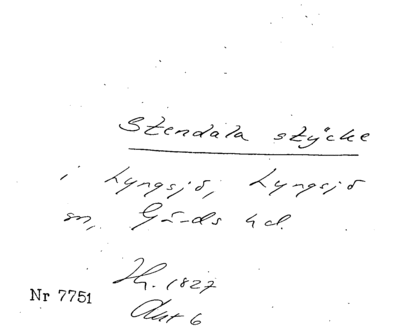 Stendala stycke
i Lyngsjö, Lyngsjö
sn, Gärds hd.
Nr 7751
1827
Akt 6